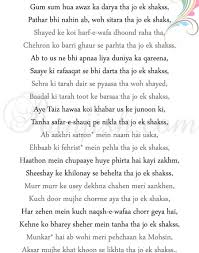 Gum sum hua awaz ka darya tha jo ek shakss,
Pathar bhi nahin ab, woh sitara tha jo ek shakss,
Shayed ke koi harf-e-wafa dhoond raha tha,
Chehron ko barri ghaur se parhta tha jo ek shakss,
Ab to us ne bhi apnaa liyaa duniya ka qareena,
Saaye ki rafaaqat se bhi darta tha jo ek shakss,
Sehra ki tarah dair se pyaasa tha woh shayed,
Baadal ki tarah toot ke barsaa tha jo ek shakss,
Aye Taiz hawaa koi khabar us ke junoon ki,
Tanha safar-e-shauq pe nikla tha jo ek shakss,
Ab aakhri satron* mein naam hai uska,
Ehbaab ki fehrist* mein pehla tha jo ek shakss,
Haathon mein chupaaye huye phirta hai kayi zakhm,
Sheeshay ke khilonay se behelta tha jo ek shakss,
Murr murr ke usey dekhna chahen meri aankhen,
Kuch door mujhe chorrne aya tha jo ek shakss,
Har zehen mein kuch naqsh-e-wafaa chorr geya hai,
Kehne ko bharey sheher mein tanha tha jo ek shakss,
Munkar* hai ab wohi meri pehchaan ka Mohsin,
Aksar mujhe khat khoon se likhta tha jo ek shakss..